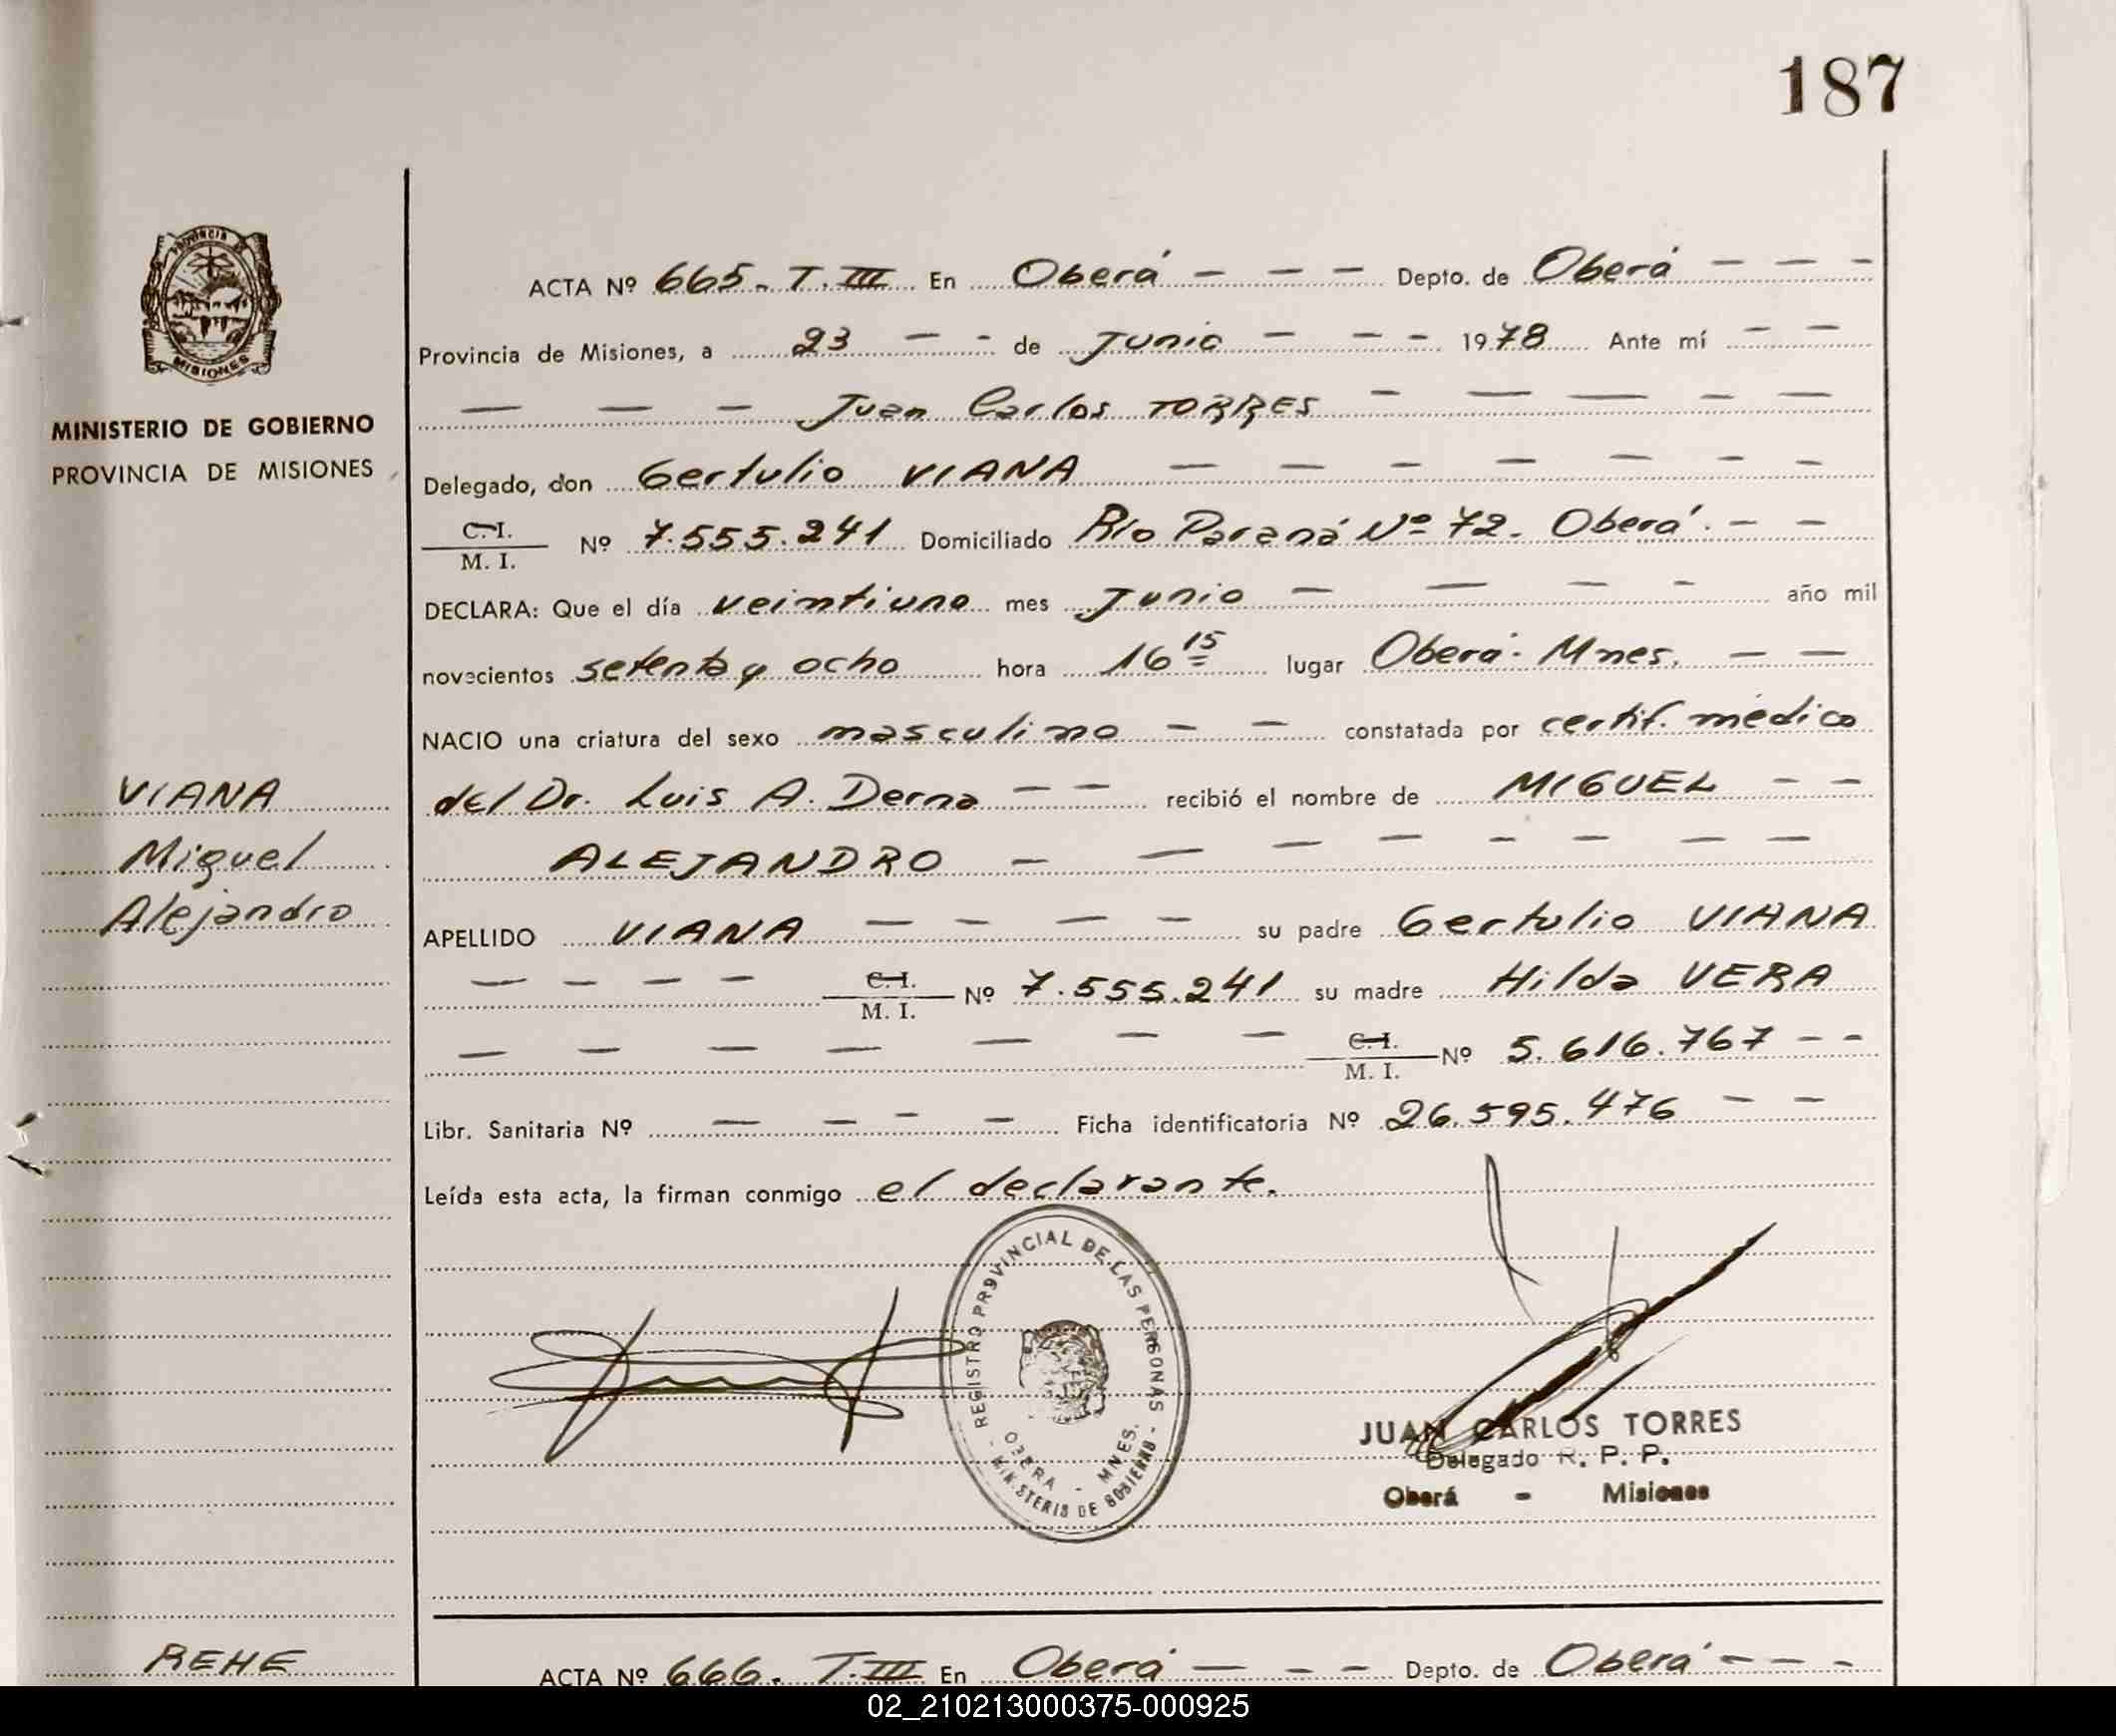 187
Provincia de
MISIONES
MINISTERIO DE GOBIERNO
PROVINCIA DE MISIONES
VIANA
Miguel
Alejandro
ACTA Nº 665. T. III En Oberá - - - Depto. de Oberá - - -
Provincia de Misiones, a 23 - - de Junio - - - 1978 Ante mí - -
- - - Juan Carlos TORRES - - - - -
Delegado, don Gertulio VIANA - - - - - - -
C.I.
M. I. Nº 7.555.241 Domiciliado Río Paraná Nº 72. Oberá. - -
DECLARA: Que el día veintiuno mes Junio - - - - año mil
novecientos setenta y ocho hora 16 15 lugar Oberá - Mnes. - -
NACIO una criatura del sexo masculino - - constatada por certif. médico
del Dr. Luis A. Derna - - recibió el nombre de MIGUEL - -
ALEJANDRO - - - - - - -
APELLIDO VIANA - - - - su padre Gertulio VIANA
- - - - C.I.
M. I. Nº 7.555.241 su madre Hilda VERA
- - - - - - - C.I.
M. I. Nº 5.616.767 - -
Libr. Sanitaria Nº - - - - Ficha identificatoria Nº 26.595.476 - -
Leída esta acta, la firman conmigo el declarante.
REGISTRO PROVINCIAL DE LAS PERSONAS
OBERA - MNES.
- MINISTERIO DE GOBIERNO -
JUAN CARLOS TORRES
Delegado R. P. P.
Oberá - Misiones
REHE
ACTA Nº 666. T. III En Oberá - - - Depto. de Oberá - - -
02_210213000375-000925